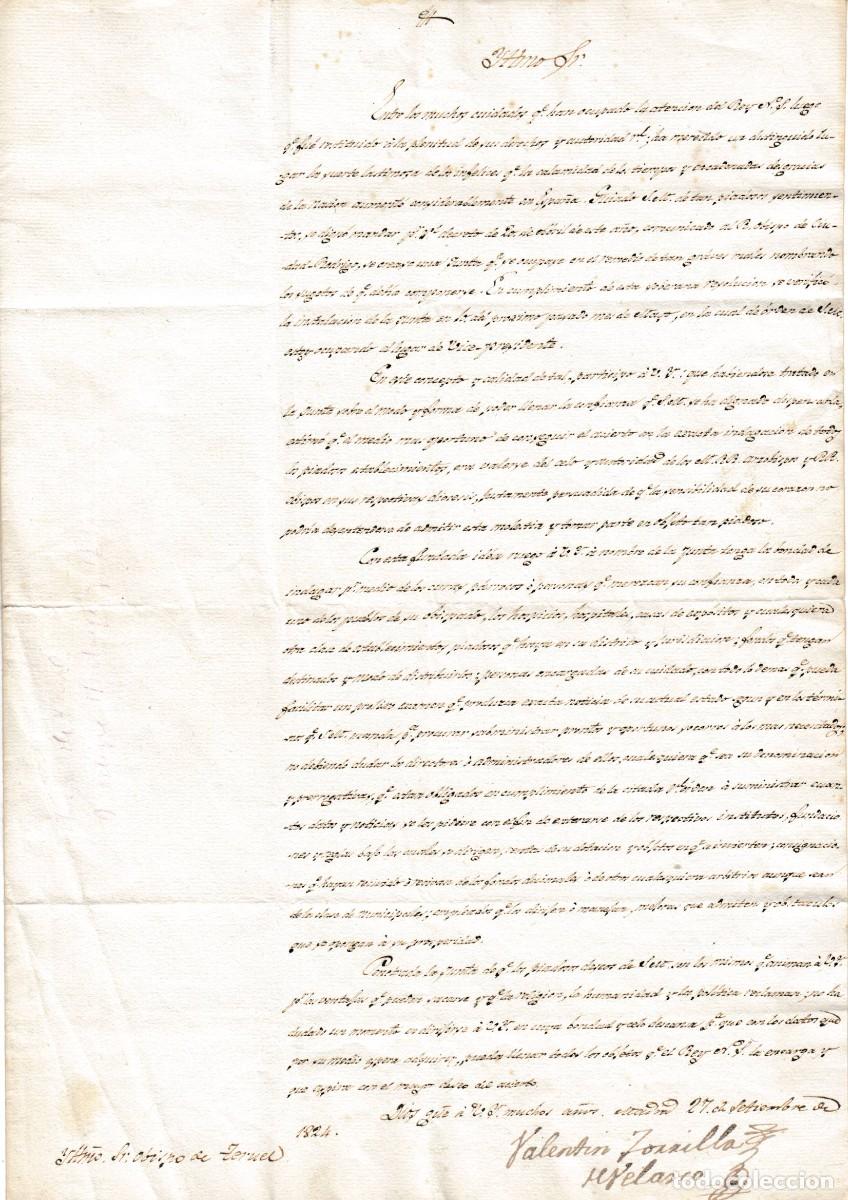 Yllmo Sr.
Entre los muchos cuidados qe. han ocupado la atencion del Rey N. S. luego
qe. fué instituido á la plenitud de sus derechos y autoridad rl.; ha merecido un distinguido lu-
gar la suerte lastimosa de los infelices qe. la calamidad de los tiempos y encadenadas desgracias
de la Nacion aumentó considerablemente en España. Guiado S.M. de tan piadosos sentimien-
tos, se dignó mandar pr. Rl. decreto de 20 de Abril de este año, comunicado al R. obispo de Ciu-
dad-Rodrigo, se crease una Junta qe. se ocupase en el remedio de tan graves males nombrando
los sugetos de qe. debia componerse. En cumplimiento de esta soberana resolucion se verificó
la instalacion de la Junta en 10 del proximo pasado mes de, en la cual de órden de S.M.
estoy ocupando el lugar de Vice-presidente.
En este concepto y calidad de tal, participo á V.Y.: que habiendose tratado en
la Junta sobre el modo y forma de poder llenar la confianza qe. S.M. se ha dignado dispensarla,
estimó qe. el medio mas oportuno de conseguir el acierto en la exacta indagacion de todos
los piadosos establecimientos, era valerse del celo y autoridad de los M.RR. Arzobispos y RR.
obispos en sus respectivas diocesis, justamente persuadida de qe. la sensibilidad de su corazon no
podria desentenderse de admitir esta molestia y tomar parte en objeto tan piadoso.
Con esta fundada idéa ruego á V.Y. á nombre de la Junta tenga la bondad de
indagar pr. medio de los curas párrocos ó personas qe. merezcan su confianza, en toda y cada
uno de los pueblos de su obispado, los hospicios, hospitales, casas de expósitos y cualesquiera
otra clase de establecimientos piadosos qe. haya en su distrito y jurisdiccion; fondos qe. tengan
destinados y modo de distribuirlos; personas encargadas de su cuidado, con todo lo demas qe. pueda
facilitar un prolijo examen qe. produzca exacta noticia de su actual estado qe. y en los térmi-
nos qe. S.M. manda, pa. procurar subministrar prontos y oportunos socorros á los mas necesitados;
no debiendo dudar los directores ó administradores de ellos, cualesquiera qe. sea su denominacion
y prerrogativas, qe. estan obligados en cumplimiento de la citada Rl. órden á suministrar cuan-
tos datos y noticias se les pidiere con el fin de enterarse de los respectivos institutos, fundacio-
nes y reglas bajo las cuales se dirigen, rentas de su dotacion y objetos en qe. se invierten; consignacio-
nes qe. hayan recibido ó reciban de los fondos decimales ó de otros cualesquiera arbitrios aunque sean
de la clase de municipales; empleados qe. los dirijan ó manejan, mejoras que admiten y obstaculos
que se opongan á su prosperidad.
Penetrada la Junta de qe. los piadosos deseos de S.M. son los mismos qe. animan á V.Y.
pr. las ventajas qe. pueden sacarse y qe. la religion, la humanidad y la política reclaman; no ha
dudado un momento en dirigirse á V.Y. en cuya bondad y celo descansa pa. que con los datos que
por su medio espera adquirir, pueda llenar todos los objetos qe. el Rey N. S. la encarga y
que aspira con el mayor deseo del acierto.
Dios gue á V.Y. muchos años. Madrid 27 de Setiembre de
1824.
Valentin Zorrilla
de Velasco
Yllmo. Sr. obispo de Teruel
todocoleccion